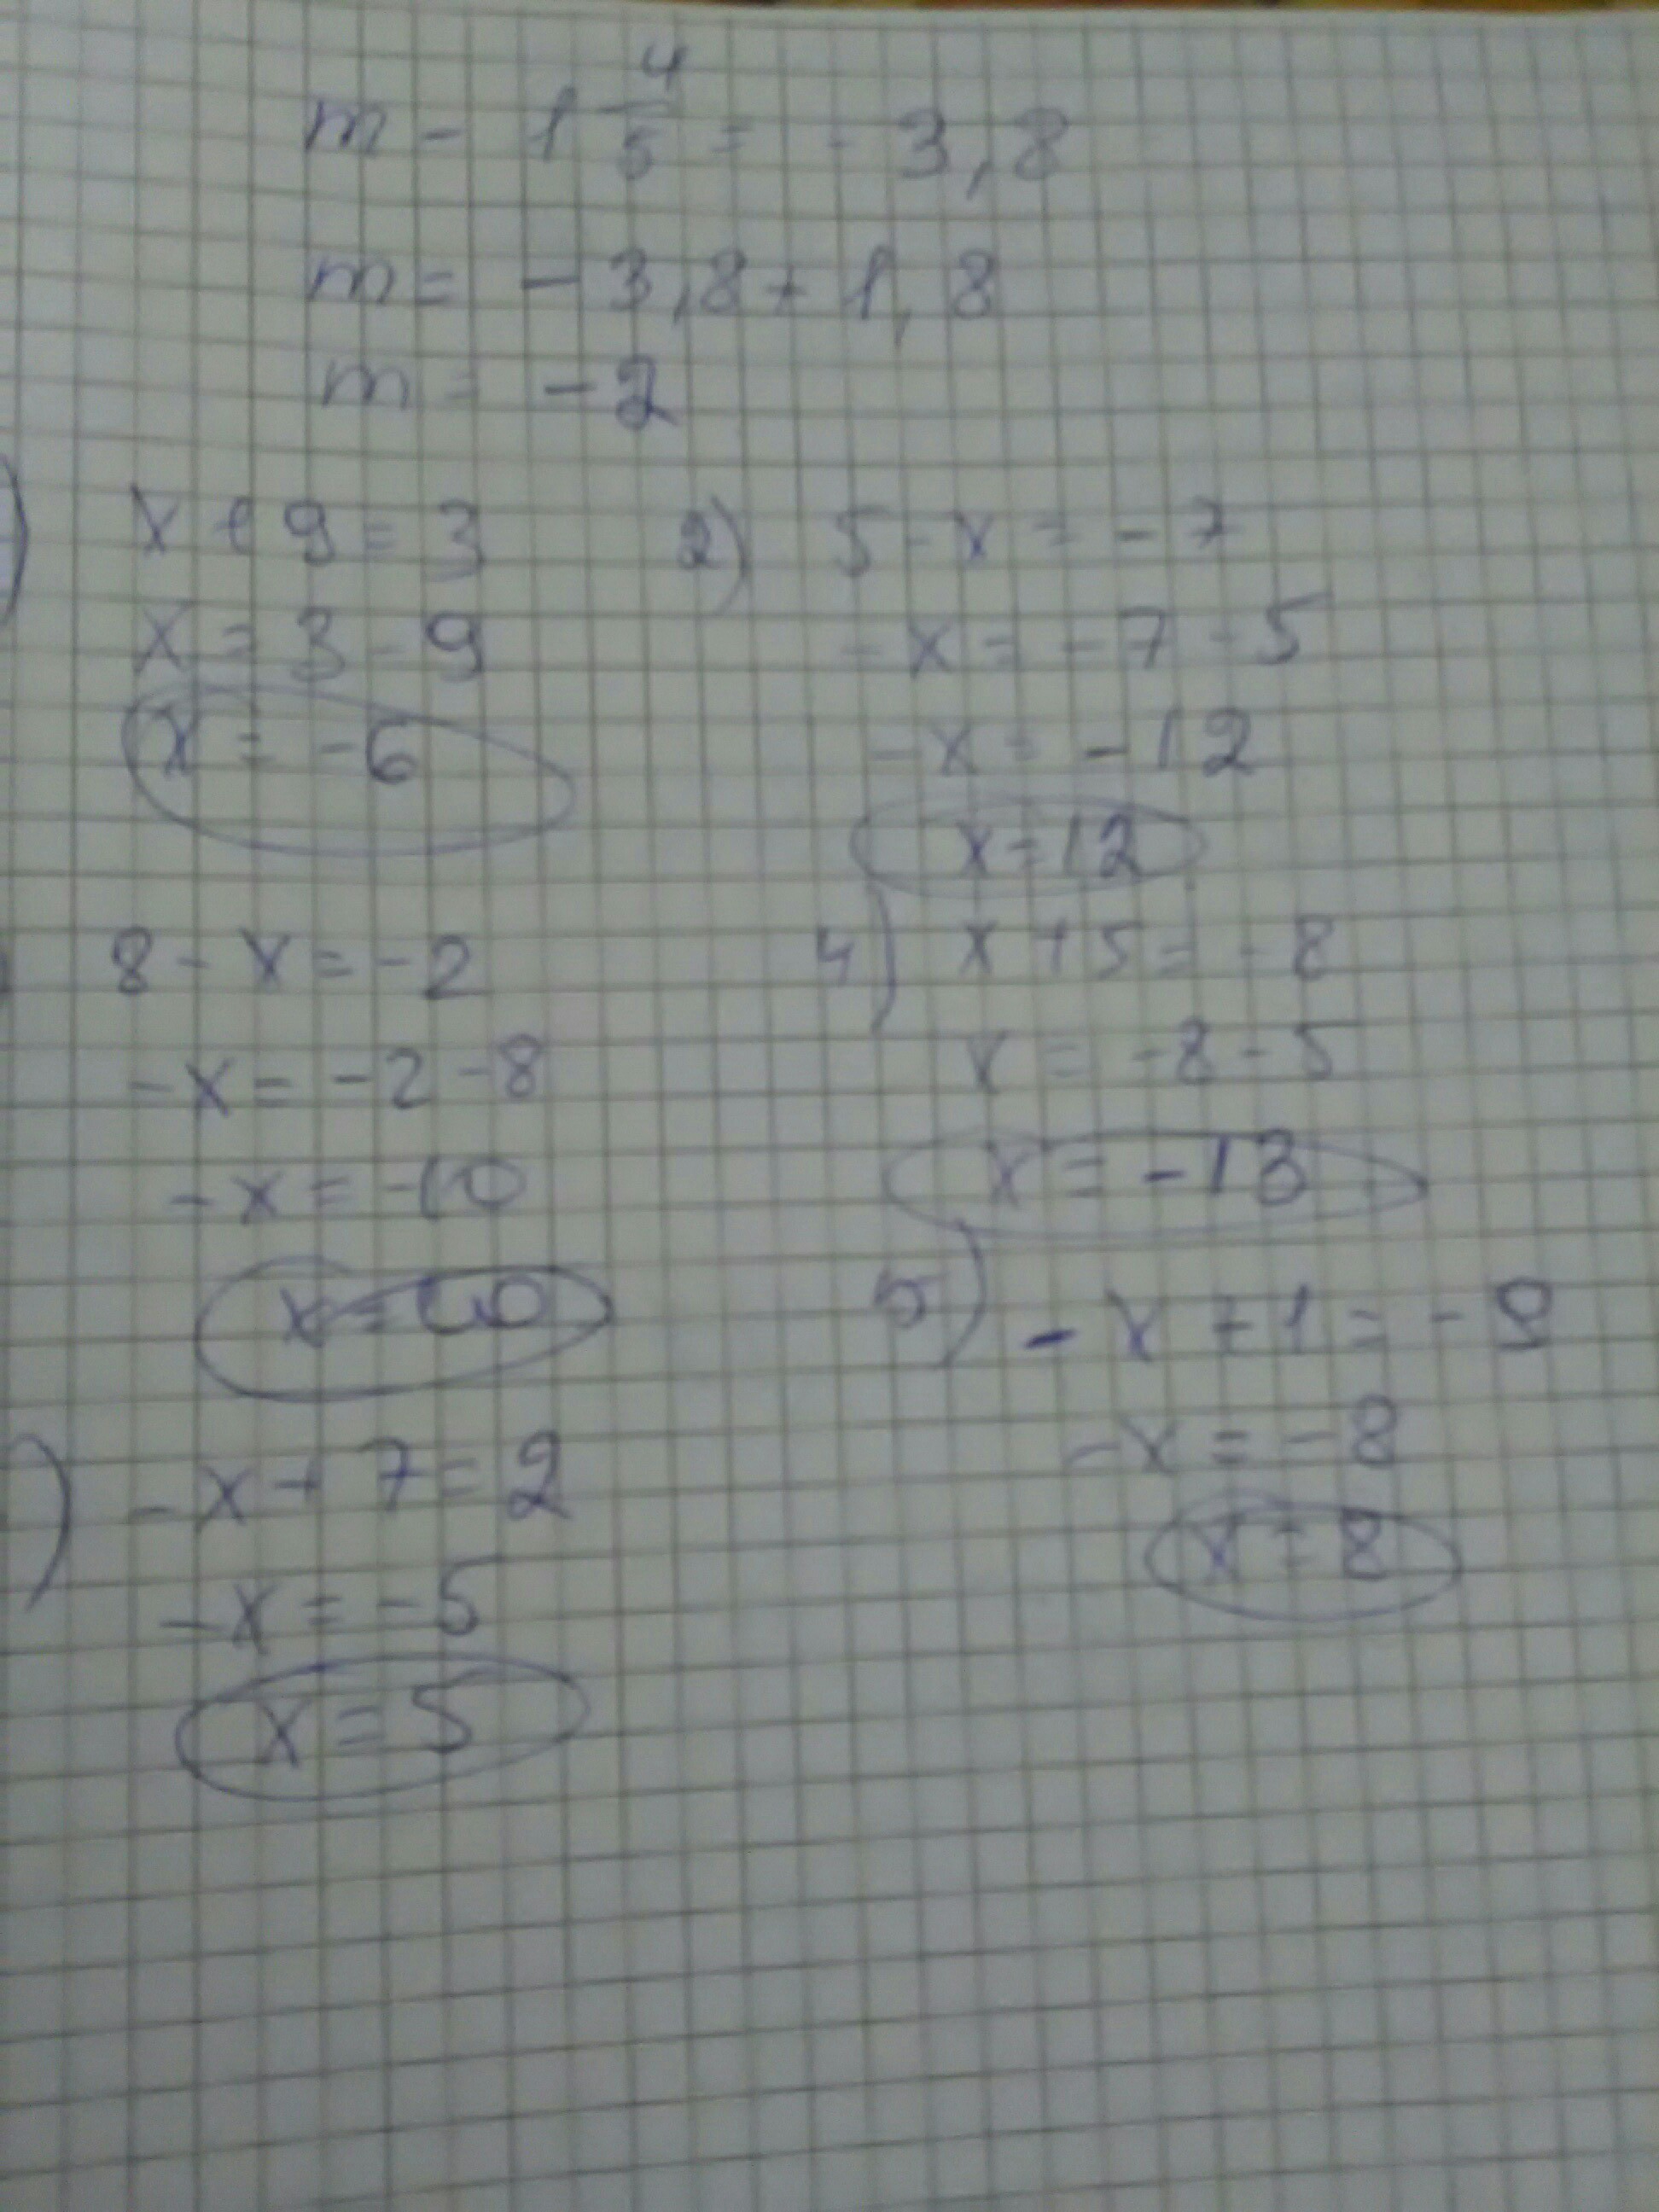 m - 1 4/5 = - 3,8
m = - 3,8 + 1,8
m = - 2
) x + 9 = 3
x = 3 - 9
x = -6
2) 5 - x = - 7
-x = -7 - 5
-x = -12
x = 12
8 - x = -2
-x = -2 -8
-x = -10
x = 10
4) x + 5 = -8
x = -8 - 5
x = -13
5) - x + 1 = - 9
-x = -8
x = 8
) -x + 7 = 2
-x = -5
x = 5